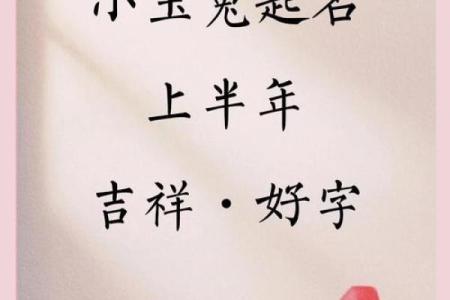 小玉兔起名
上半年
吉祥·好字